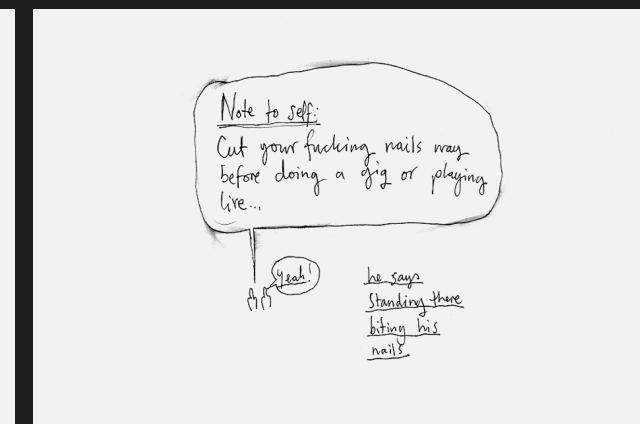 Note to self:
Cut your fucking nails way
before doing a gig or playing
live...
yeah!
he says
Standing there
biting his
nails